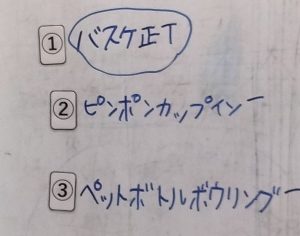 ① バスケ正T
② ピンポンカップイン一
③ ペットボトルボウリング一